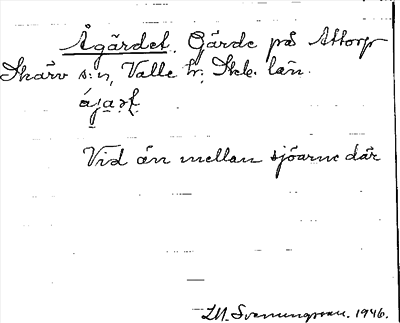 Ågärdet. Gärde på Attorp
Skärv s:n, Valle hr. Skb. län.
Vid ån mellan sjöarne där
LM. Svenungsson. 1946.